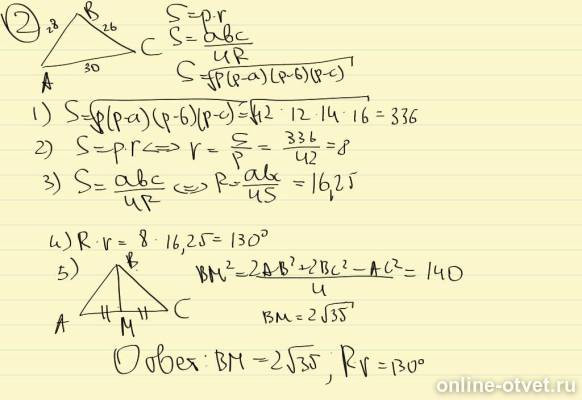 2) B
28 26
A 30 C
S=p·r
S=abc/4R
S=√p(p-a)(p-б)(p-c)
1) S=√p(p-a)(p-б)(p-c)=√42·12·14·16=336
2) S=p·r⇔r=S/p=336/42=8
3) S=abc/4R⇔R=abc/4S=16,25
4) R·r=8·16,25=130°
5) B
A M C
BM²=2AB²+2BC²-AC²/4=140
BM=2√35
Ответ: BM=2√35; R·r=130°
online-otvet.ru